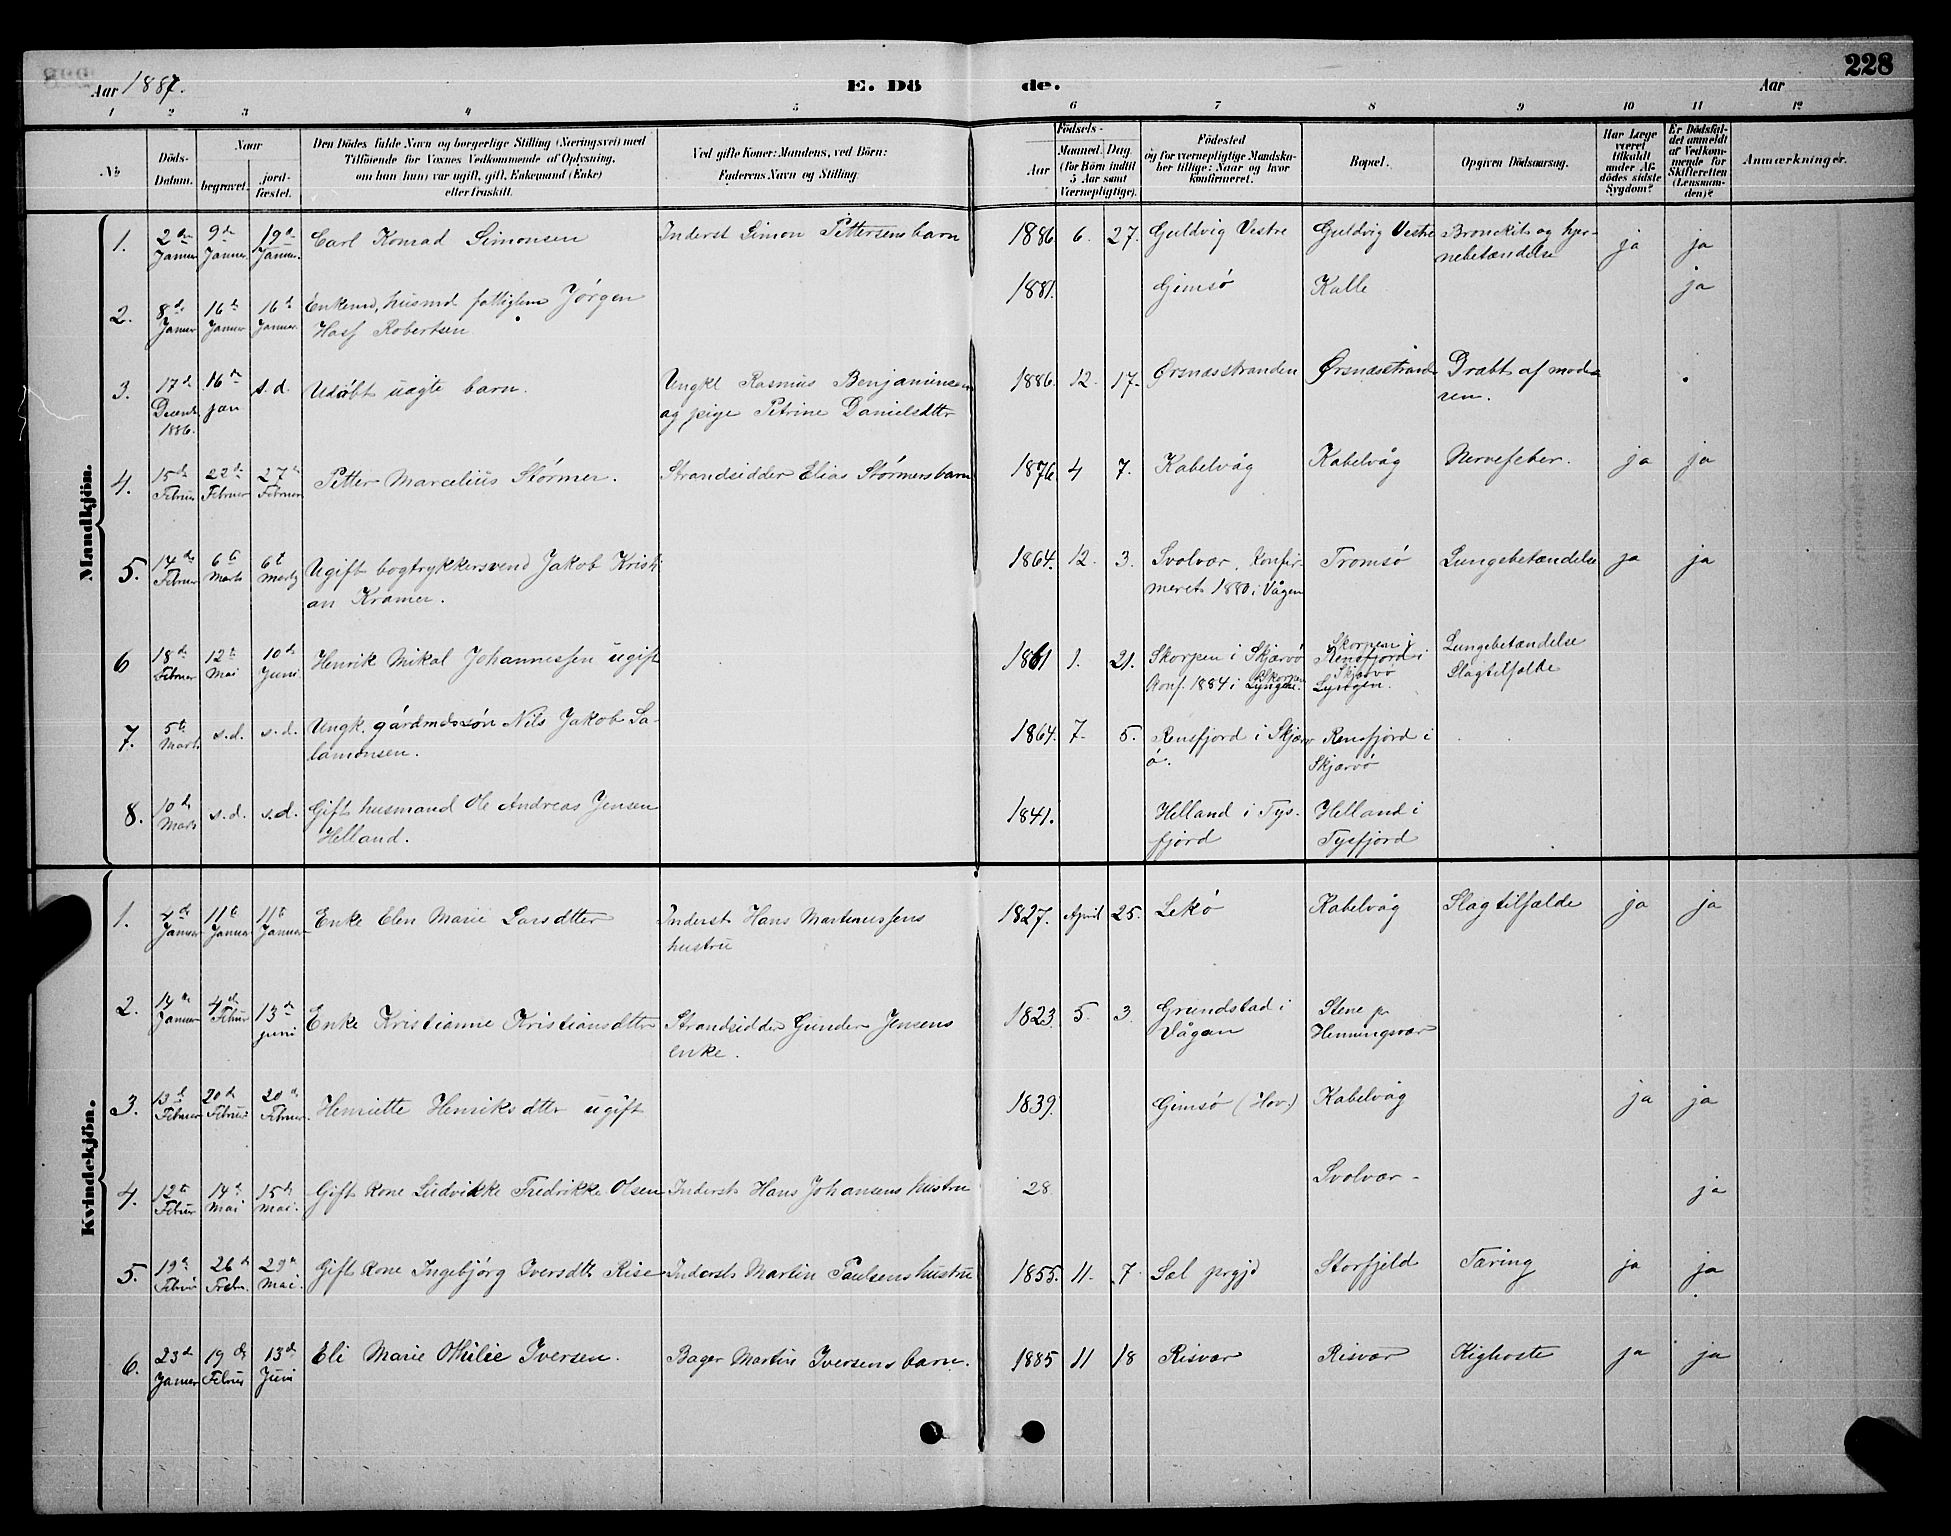 Aar 1887.
E. Döde.
Aar
228
1 2 3 4 5 6 7 8 9 10 11 12
No
Döds-Datum.
Naar
begravet.
jordfæstet.
Den Dödes fulde Navn og borgerlige Stilling (Næringsvei) med
Tilföiende for Voxnes Vedkommende af Oplysning,
om han (hun) var ugift, gift, Enkemand (Enke)
eller fraskilt.
Ved gifte Koner: Mandens, ved Börn:
Faderens Navn og Stilling
Födsels-
Aar
Maaned. Dag.
(for Börn indtil
5 Aar samt
Værnepligtige).
Födested
og for værnepligtige Mandska-
ber tillige: Naar og hvor
konfirmeret.
Bopæl.
Opgiven Dödsaarsag.
Har Læge
været
tilkaldt
under Af-
dödes sidste
Sygdom?
Er Dödsfal-
det anmeldt
af Vedkom-
mende for
Skifteretten
(Lensman-
den)?
Anmærkninger.
Mandkjön.
1. 2den Januar 9de Januar 19de Januar Carl Konrad Simonsen Inderst Simon Pettersens barn 1886 6. 27. Guldvig Vestre Guldvig Vestre Bronckit og hjer-
nebetændelse ja ja
2. 8de Januar 16de Januar 16de Januar Enkemd, husmd fattiglem Jørgen
Robertsen 1881. Gimsø Kalle ja
3. 17de Decemb. 1886. 16de jan s. d. Udøbt uægte barn. Ungkl Rasmus Benjaminsen
og pige Petrine Danielsdtr 1886. 12. 17. Ørsnæsstranden Ørsnæsstrande Dræbt af mode-
ren.
4. 15de Februar 22de Februar 27de Februar Petter Marcelius Størmer. Strandsidder Elias Størmers barn 1876 4 7. Kabelvåg Kabelvåg Nervefeber. ja ja
5. 14de Februar 6te Marts 6te Marts Ugift bogtrykkersvend Jakob Kristi-
an Kramer. 1864. 12. 3. Svolvær, Konfir-
meret 1880 i Vågen Tromsø Lungebetændelse ja ja
6 18de Februar 12te Mai 10de Juni Henrik Mikal Johannessen ugift 1861 1. 21. Skorpen i Skjærvø
Konf. 1884 i Lyngen. Skorpen i
Rensfjord i
Skjærvø
Lyngen. Lungebetændelse
Slagtilfælde
7. 5te Marts s. d. s. d. Ungk. gårdmdssøn Nils Jakob Sa-
lamonsen. 1864. 7. 5. Rensfjord i Skjærv
ø. Rensfjord i
Skjærvø
8. 10de Marts s. d. s. d. Gift husmand Ole Andreas Jensen
Helland. 1841. Helland i Tys-
fjord Helland i
Tysfjord
Kvindekjön.
1. Januar 11te Januar 11te Januar Enke Elen Marie Larsdtter Inderst Hans Martinussens
hustru 1827. April 25. Lekø Kabelvåg Slagtilfælde ja ja
2. 14de Januar 4de Februar 13de juni Enke Kristianne Kristiansdtter Strandsidder Gunder Jensens
enke. 1823. 5. 3. Grundstad i
Vågan Stene pr
Henningsvær
3. 13de Februar 20de Februar 20de Februar Henriette Henriksdtter ugift 1839. Gimsø (Hov.) Kabelvåg ja ja
4. 12te Februar 14de Mai 15de mai. Gift kone Ludvikke Fredrikke Olsen Inderst Hans Johansens hustru 28 Svolvær - ja
5. 19de Februar 26de Febr. 29de Mai. Gift kone Ingebjørg Iversdtr Rise Inderst Martin Paulsens hustru 1855. 11. 7. Sal prgjd Storfjeld Tæring ja ja
6. 23de Januar 19de Februar 13de Juni Eli Marie Othilie Iversen. Bager Martin Iversens barn. 1885 11 18 Risvær Risvær Kighoste ja ja